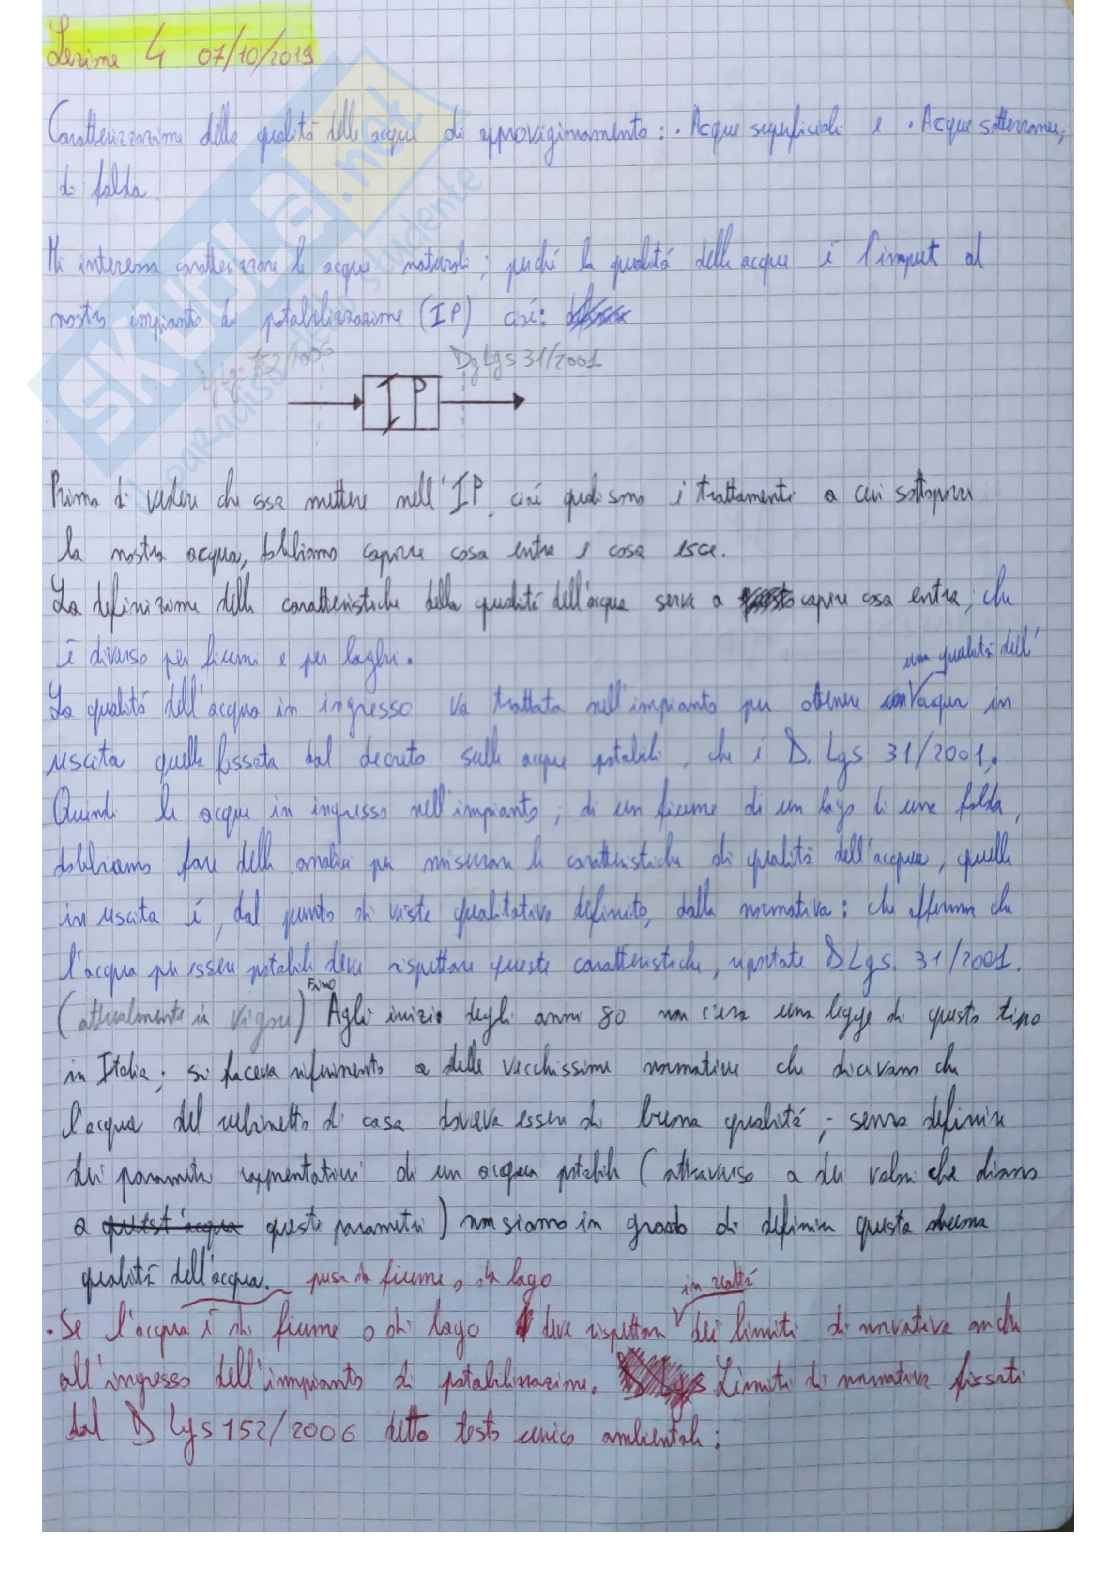 Lezione 4 07/10/2019
Caratterizzazione delle qualità delle acque di approvigionamento: · Acque superficiali e · Acque sotterranee,
di falda.
Mi interessa caratterizzare le acque naturali; perché la qualità delle acque è l'imput al
nostro impianto di potabilizzazione (IP) cioè:
152/2006 D Lgs 31/2001
IP
Prima di vedere che cosa mettere nell'IP, cioè quali sono i trattamenti a cui sottoporre
la nostra acqua, dobbiamo capire cosa entra e cosa esce.
La definizione delle caratteristiche della qualità dell'acqua serve a capire cosa entra, che
è diverso per fiumi e per laghi.
una qualità dell'
La qualità dell'acqua in ingresso va trattata nell'impianto per ottenere acqua in
uscita quella fissata dal decreto sulle acque potabili, che è D. Lgs 31/2001.
Quindi le acque in ingresso nell'impianto, di un fiume di un lago di una falda,
dobbiamo fare delle analisi per misurare le caratteristiche di qualità dell'acqua, quella
in uscita è, dal punto di vista qualitativo definito, dalla normativa: che afferma che
l'acqua per essere potabile deve rispettare queste caratteristiche, riportate D Lgs. 31/2001.
FINO
(attualmente in vigore) Agli inizio degli anni 80 non c'era una legge di questo tipo
in Italia; si faceva riferimento a delle vecchissime normative che dicevano che
l'acqua del rubinetto di casa doveva essere di buona qualità; senza definire
dei parametri rappresentativi di un acqua potabile (attraverso a dei valori che diamo
a quest'acqua questi parametri) non siamo in grado di definire questa buona
qualità dell'acqua. presa da fiume o da lago
in realtà
· Se l'acqua è di fiume o di lago deve rispettare dei limiti di normativa anche
all'ingresso dell'impianto di potabilizzazione. Limiti di normativa fissati
dal D Lgs 152/2006 detto testo unico ambientale:
SKUOLA.net
paradiso dello studente